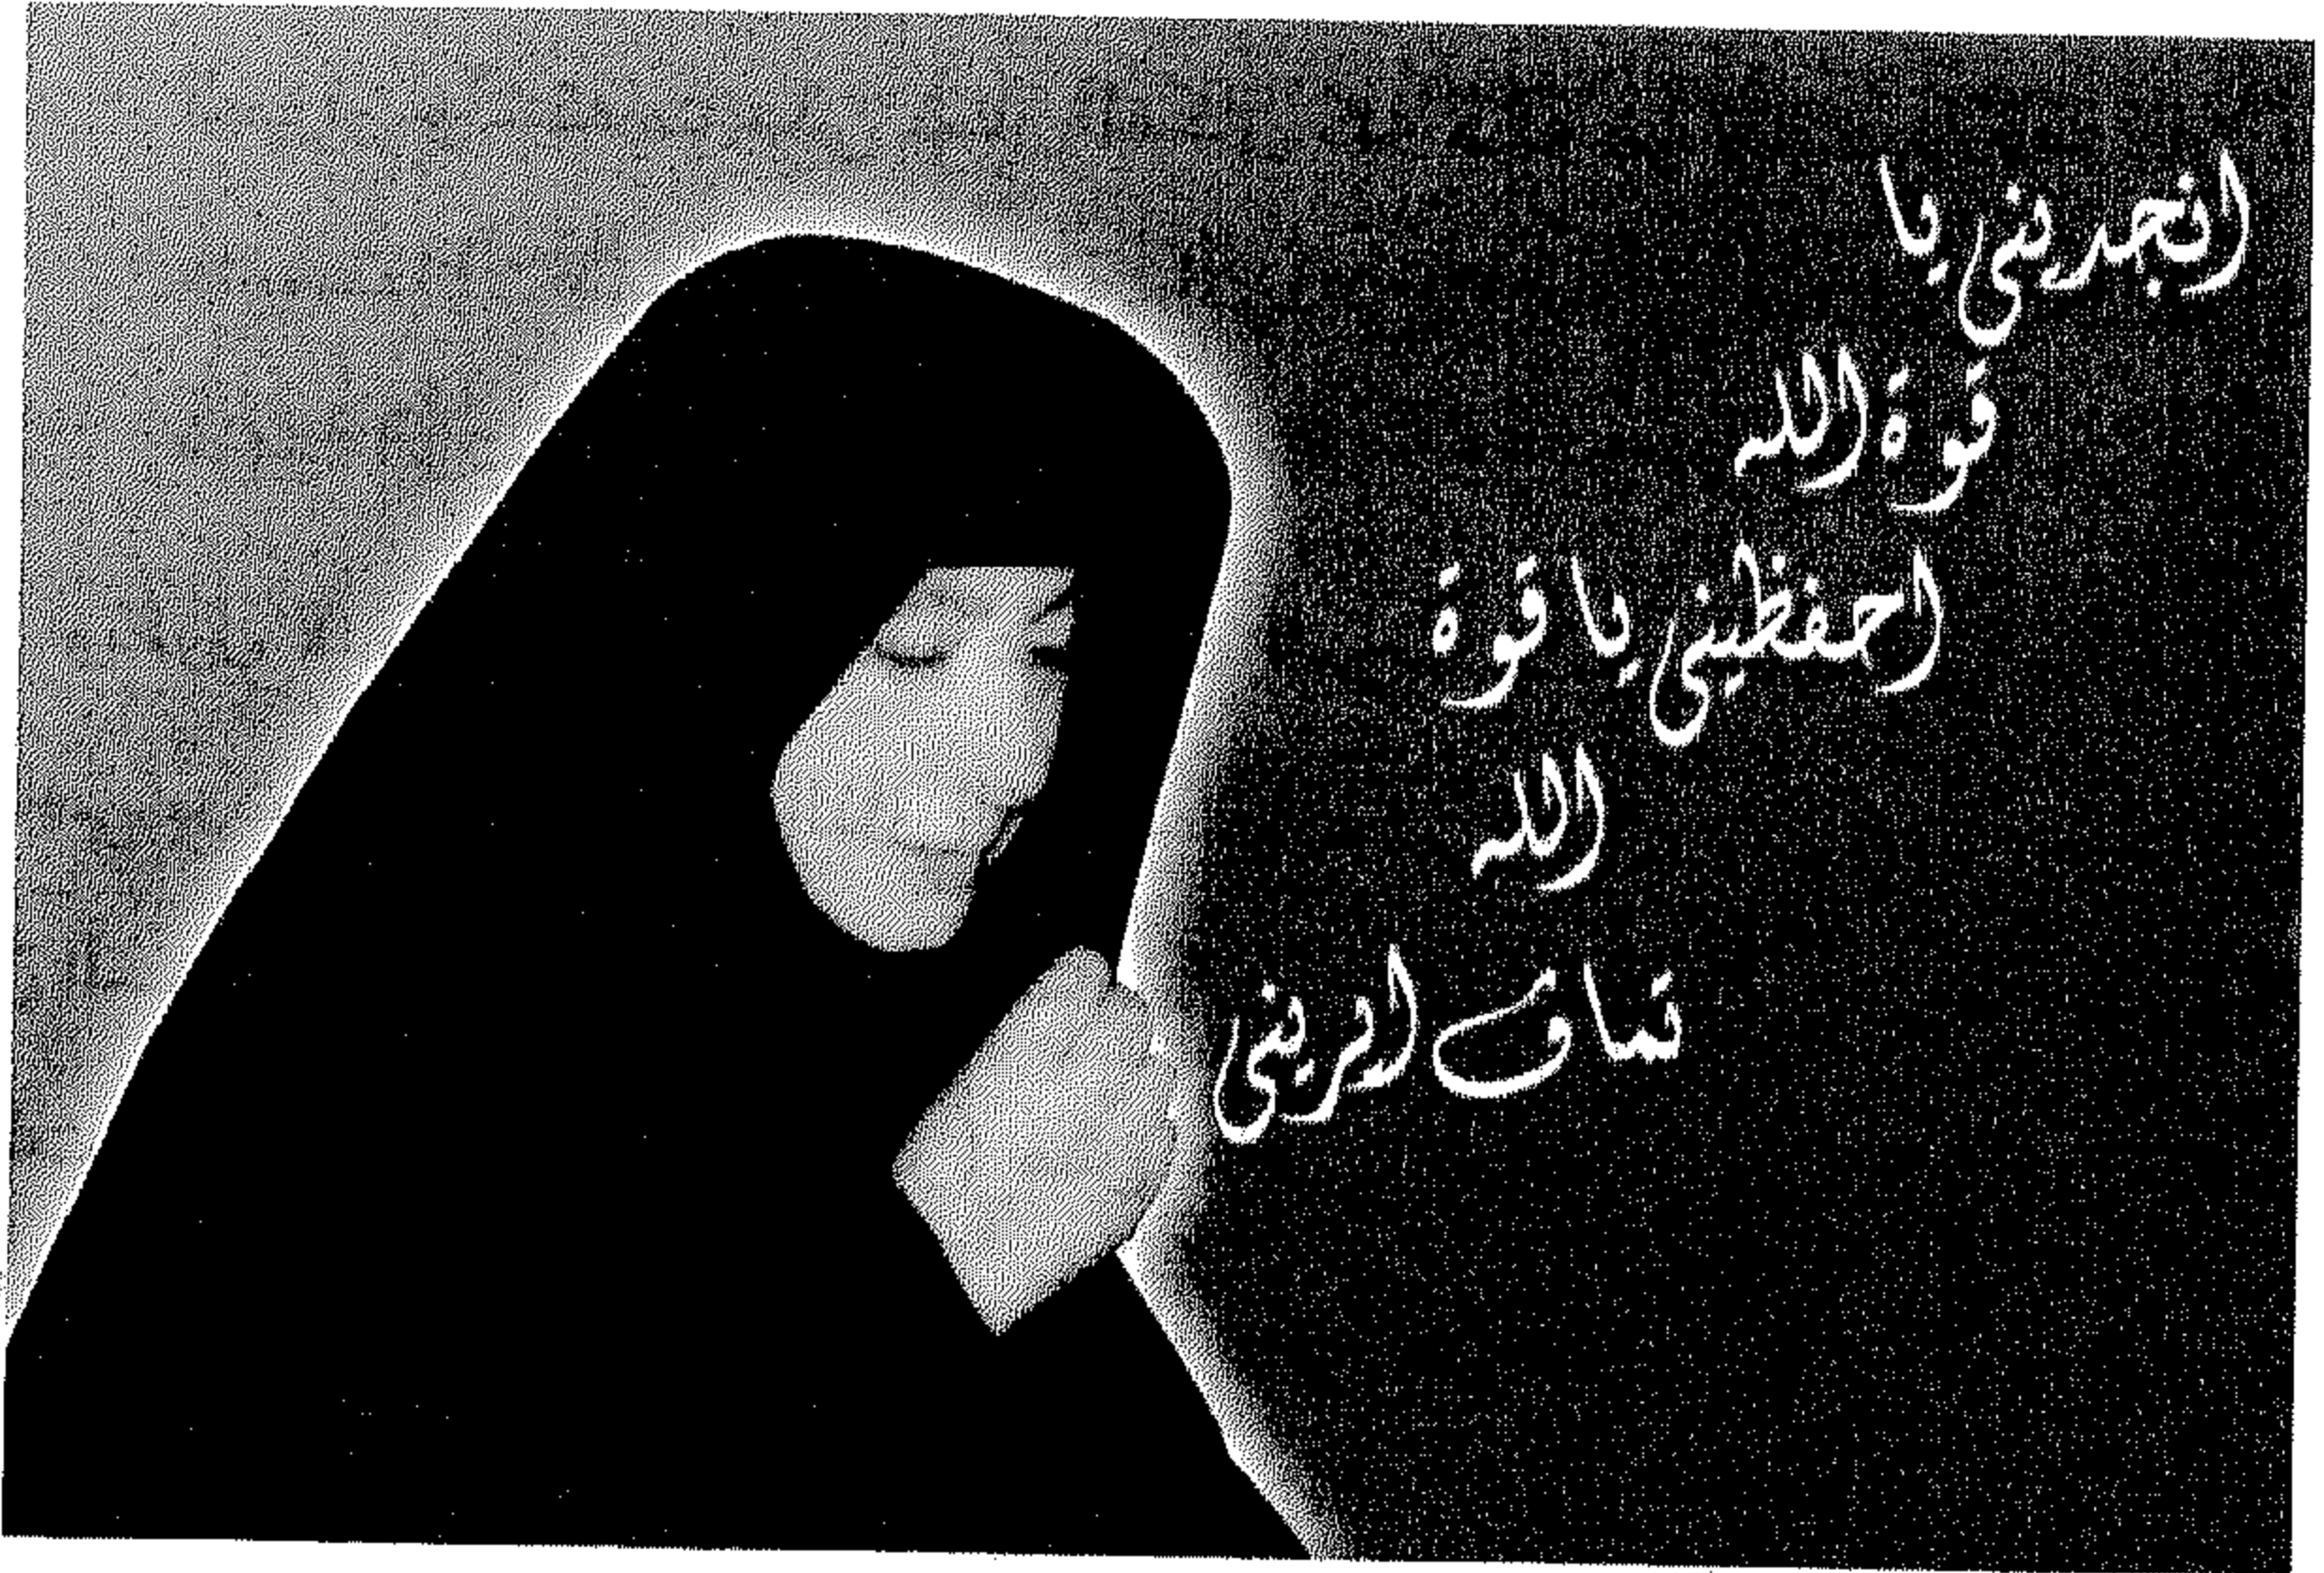 انجديني يا
قوة الله
احفظيني يا قوة
الله
تماف ايريني